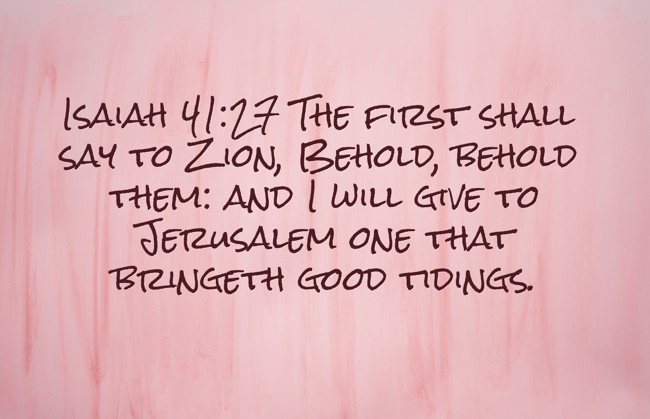 Isaiah 41:27 The first shall
say to Zion, Behold, behold
them: and I will give to
Jerusalem one that
bringeth good tidings.